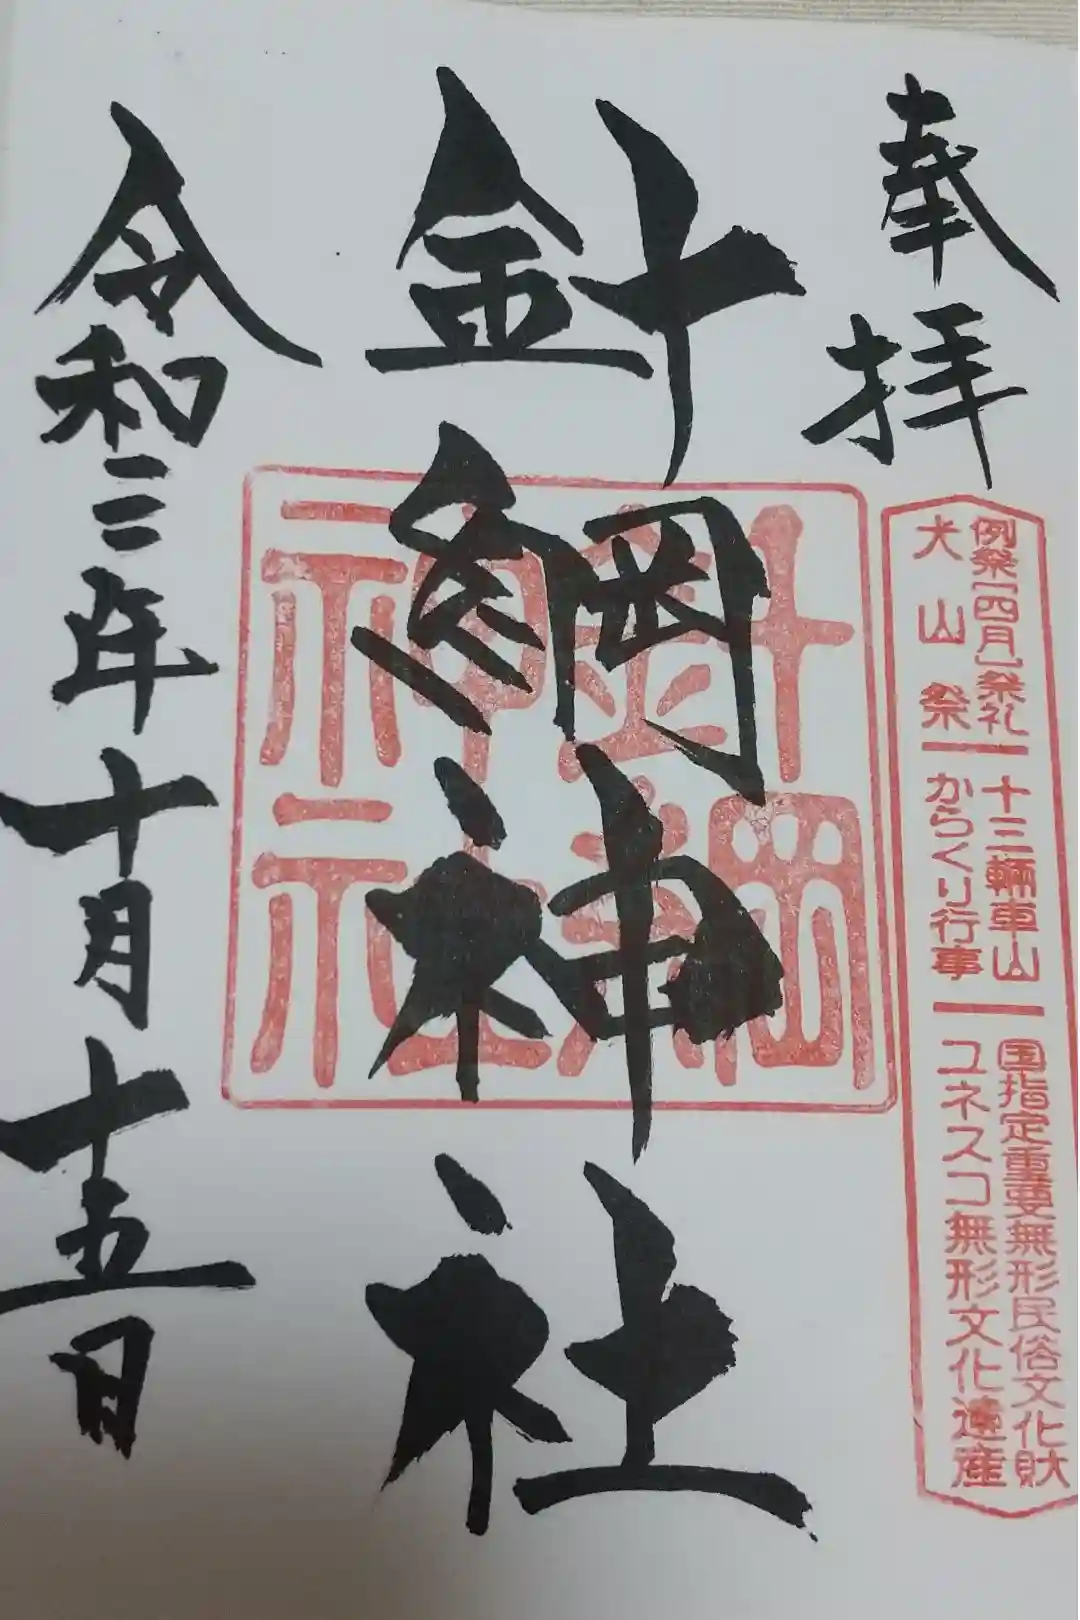 奉拝
例祭[四月]祭礼
犬山祭
十三輛車山
からくり行事
国指定重要無形民俗文化財
ユネスコ無形文化遺産
針綱神社
針綱
神社
令和三年十月十五日